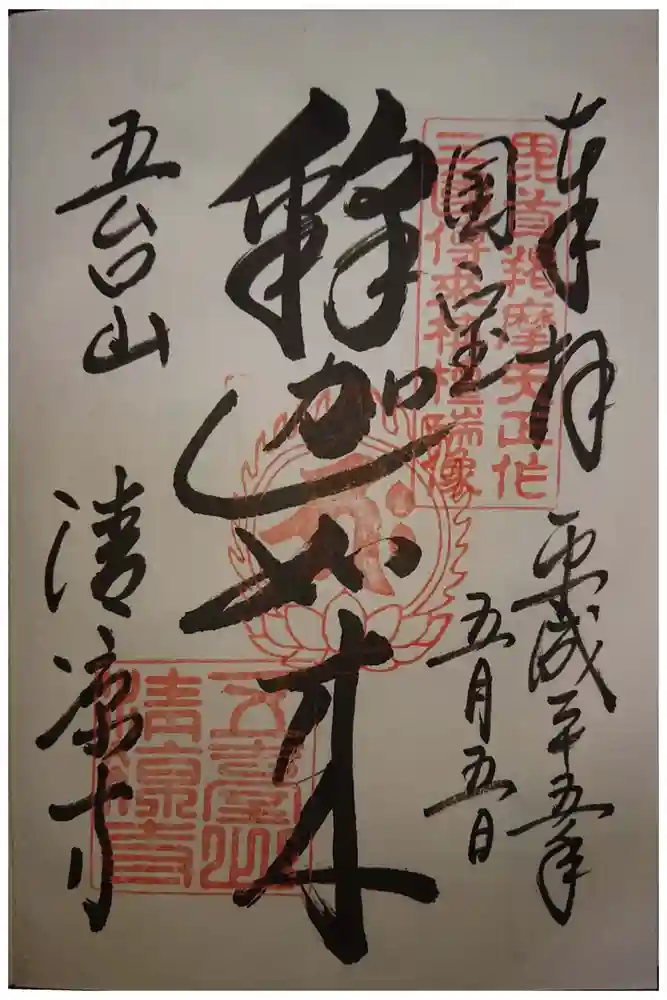 奉拝
平成二十五年
五月五日
毘首羯摩天正作
三國傳来栴檀瑞像
国宝
釋迦如来
五台山
清凉寺
五臺山
清涼寺